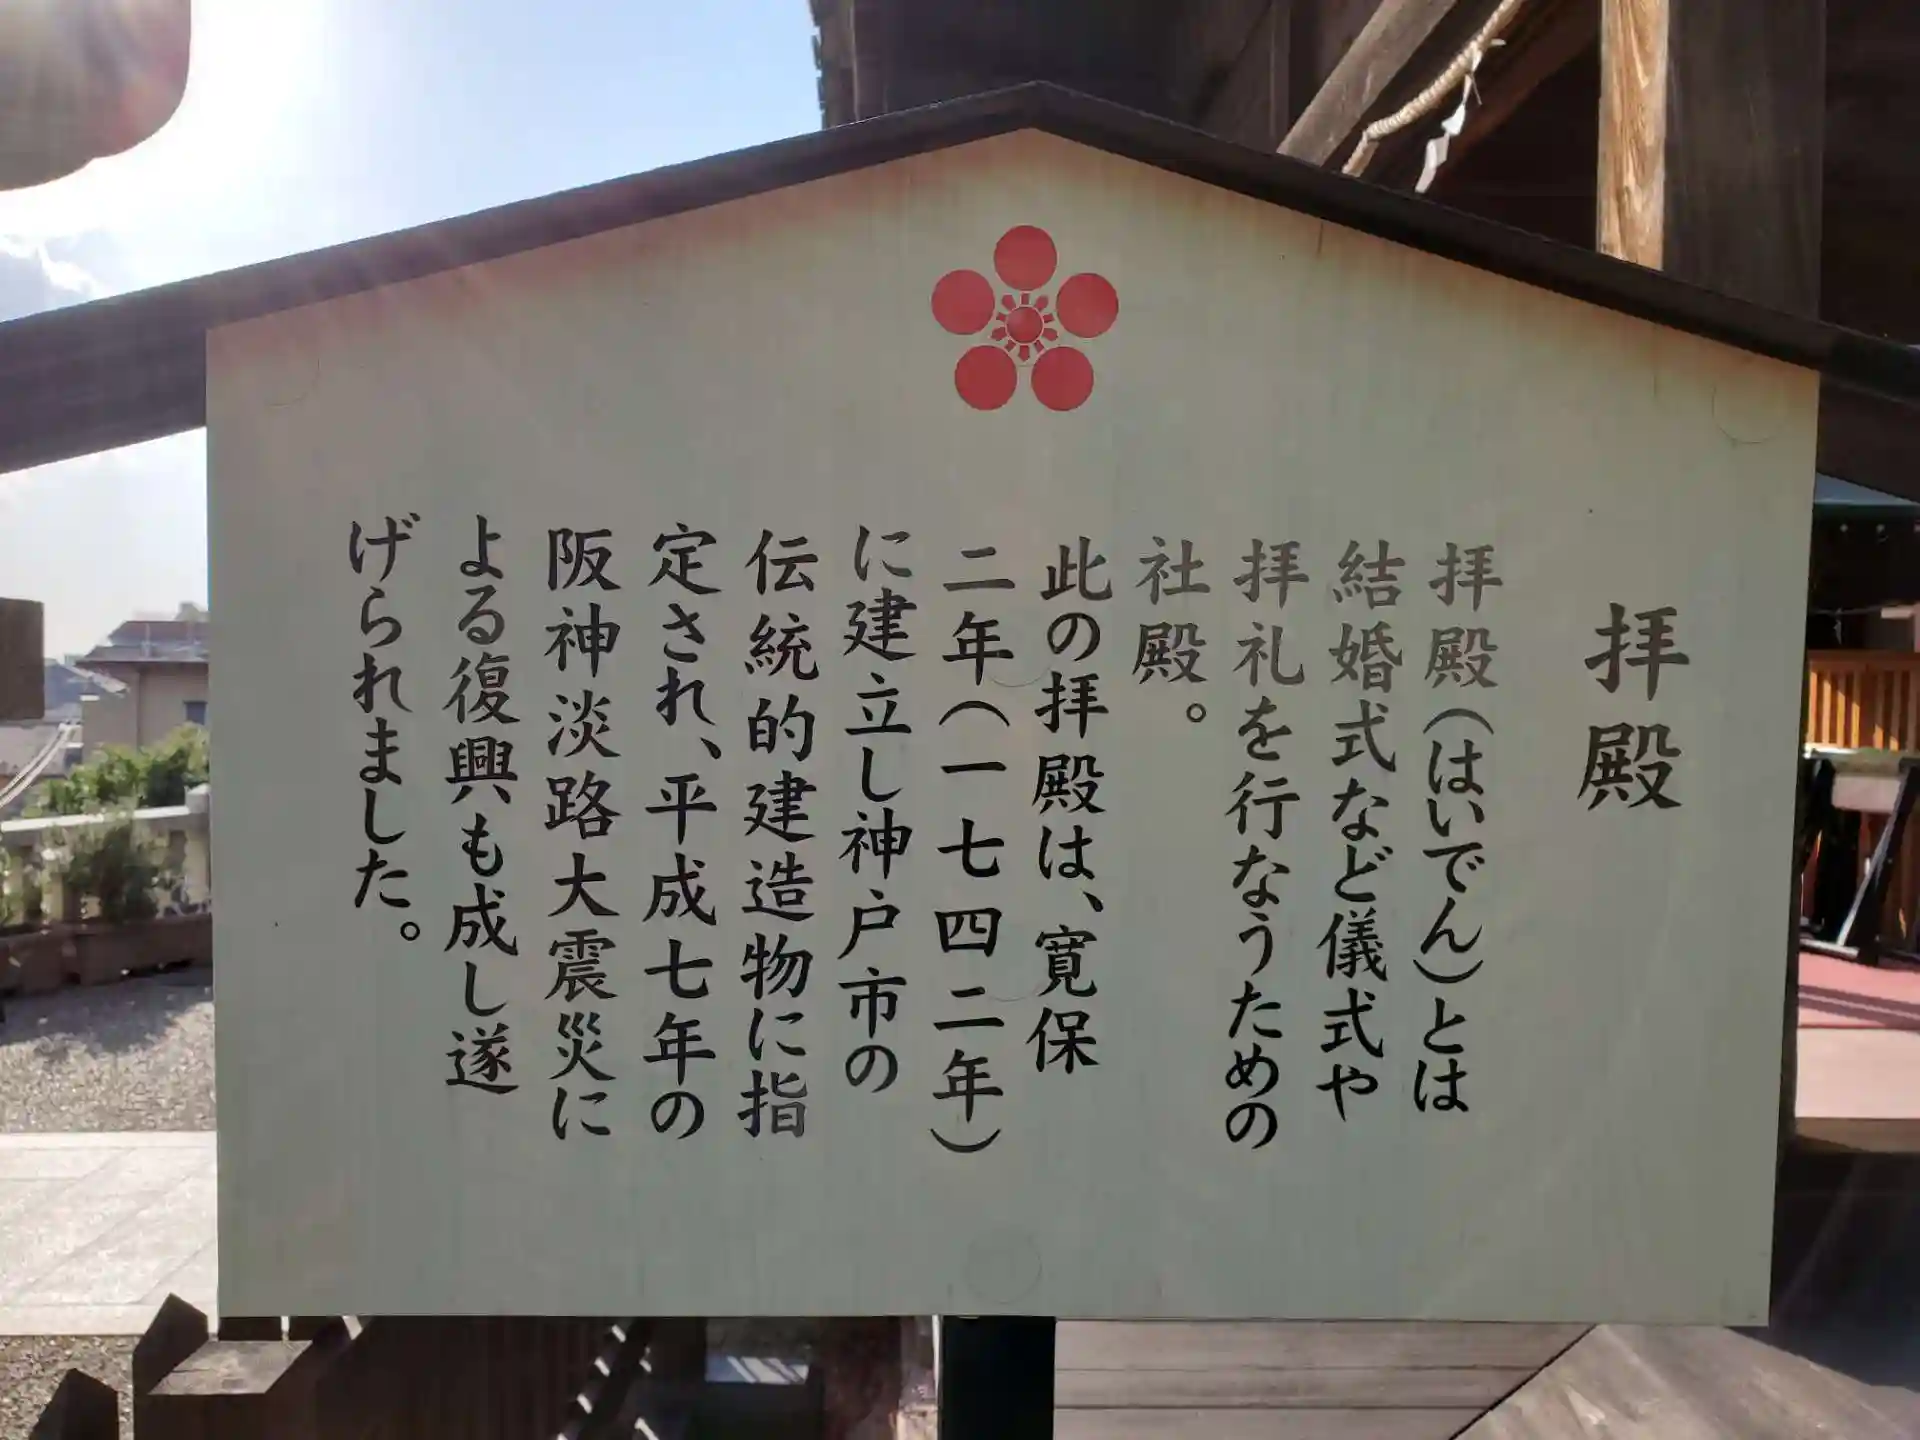 拝殿
拝殿(はいでん)とは
結婚式など儀式や
拝礼を行なうための
社殿。
此の拝殿は、寛保
二年(一七四二年)
に建立し神戸市の
伝統的建造物に指
定され、平成七年の
阪神淡路大震災に
よる復興も成し遂
げられました。